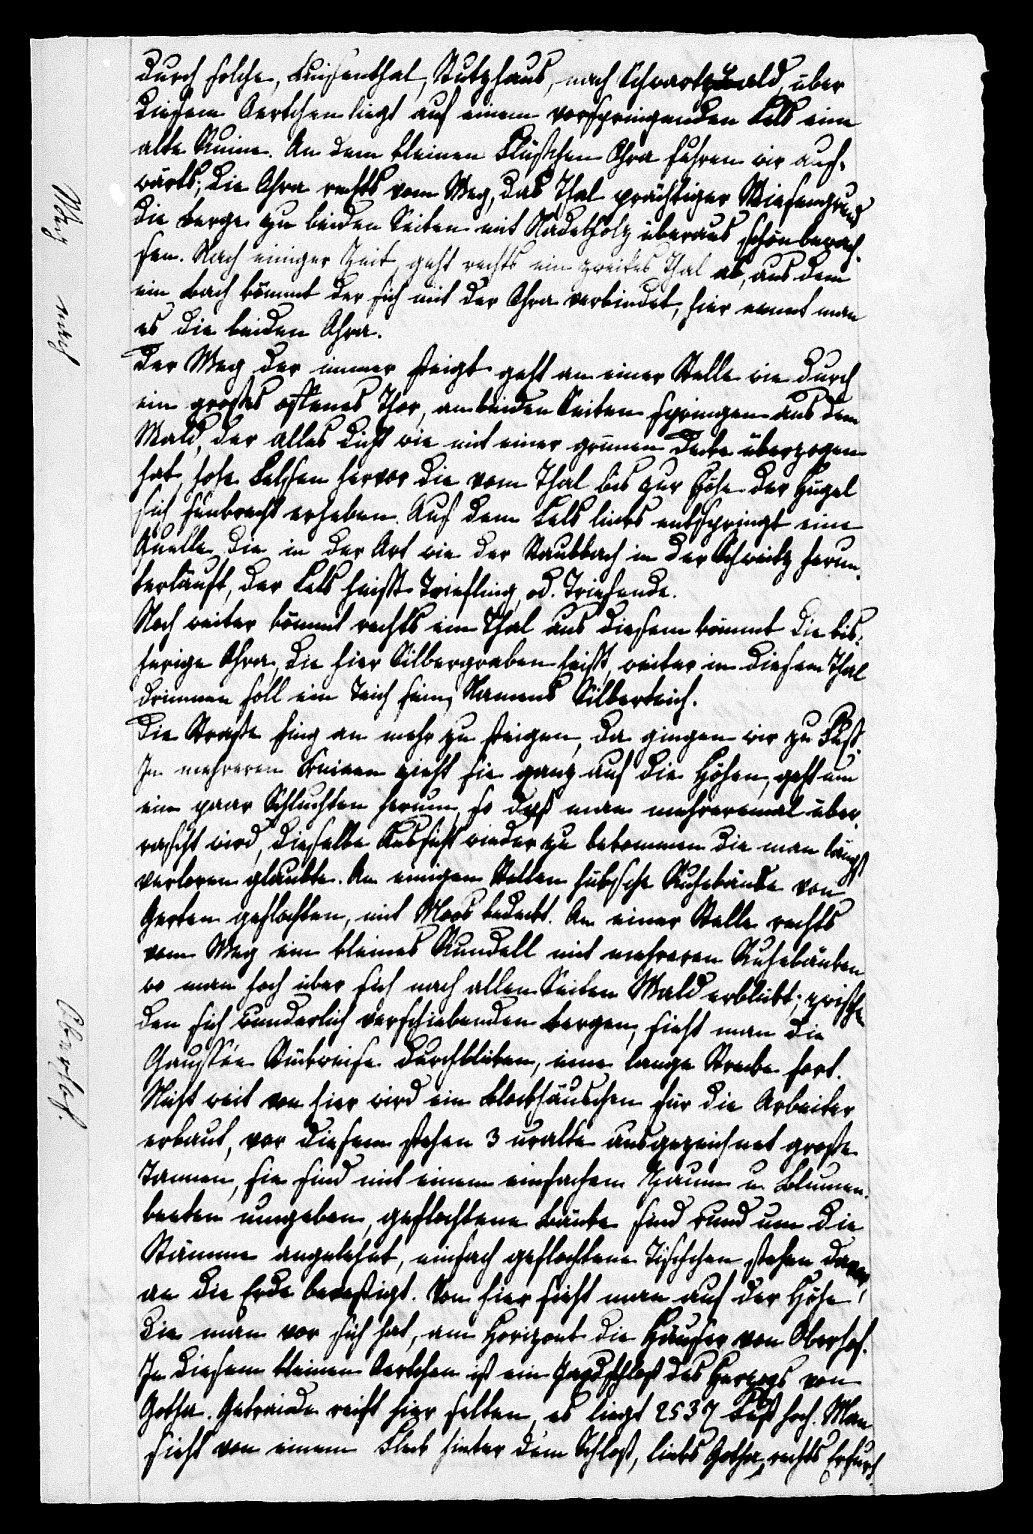 durch solche, Luisenthal, Stutzhaus, nach Schwartzwald, über
diesem Oertchen liegt auf einem vorspringenden Fels eine
alte Ruine. An dem kleinen Flüßchen Ohra fuhren wir auf-
wärts; die Ohra rechts vom Weg, das Thal prächtiger Wiesengrund
die Berge zu beiden Seiten mit Nadelholz überaus schön bewach-
sen. Nach einiger Zeit geht rechts ein zweites Thal ab, aus dem
ein Bach kömmt der sich mit der Ohra verbindet, hier nennt man
es die beiden Ohra.
Der Weg der immer steigt geht an einer Stelle wie durch
ein großes offenes Thor, an beiden Seiten springen aus dem
Wald, der alles dicht wie mit einer grünen Decke überzogen
hat, hohe Felsen hervor die vom Thal bis zur Höhe der Hügel
sich senkrecht erheben. Auf dem Fels links entspringt eine
Quelle die in der Art wie der Staubbach in der Schweitz herun-
terläuft, der Fels heißt Triefling, od. Triefende.
Noch weiter kömmt rechts ein Thal aus diesem kömmt die bis-
herige Ohra, die hier Silbergraben heißt, weiter in diesem Thal
drinnen soll ein Teich sein, Namens Silberteich.
Die Straße fing an mehr zu steigen, da gingen wir zu Fuß.
In mehreren zieht sie ganz auf die Höhen, geht um
ein paar Schluchten herum, so daß man mehreremal über-
rascht wird, dieselbe Aussicht wieder zu bekommen die man längst
verloren glaubte. An einigen Stellen hübsche Ruhebänke von
Gerten geflochten, mit Moos bedeckt. An einer Stelle rechts
vom Weg ein kleines Rundell mit mehreren Ruhebänken
wo man hoch über sich nach allen Seiten Wald erblickt; zwischen
den sich wunderlich verschiebenden Bergen, sieht man die
Chaussée Stückweise durchblicken, eine lange Strecke fort.
Nicht weit von hier wird ein Blockhäuschen für die Arbeiter
erbaut, vor diesem stehen 3 uralte ausgezeichnet große
Tannen, sie sind mit einem einfachen Zaum u. Blumen-
beeten umgeben, geflochtene Bänke sind rund um die
Stämme angelehnt, einfach geflochtene Tischchen stehen davor,
an die Erde befestigt. Von hier sieht man auf der Höhe,
die man vor sich hat, am Horizont die Häuser von Oberhof.
In diesem kleinen Oertchen ist ein Jagdschloß des Herzogs von
Gotha. Getraide reift hier selten, es liegt 2537 Fuß hoch. Man
sieht von einem Fleck hinter dem Schloß, links Gotha, rechts Erfurt.
Weg nach
Oberhof.